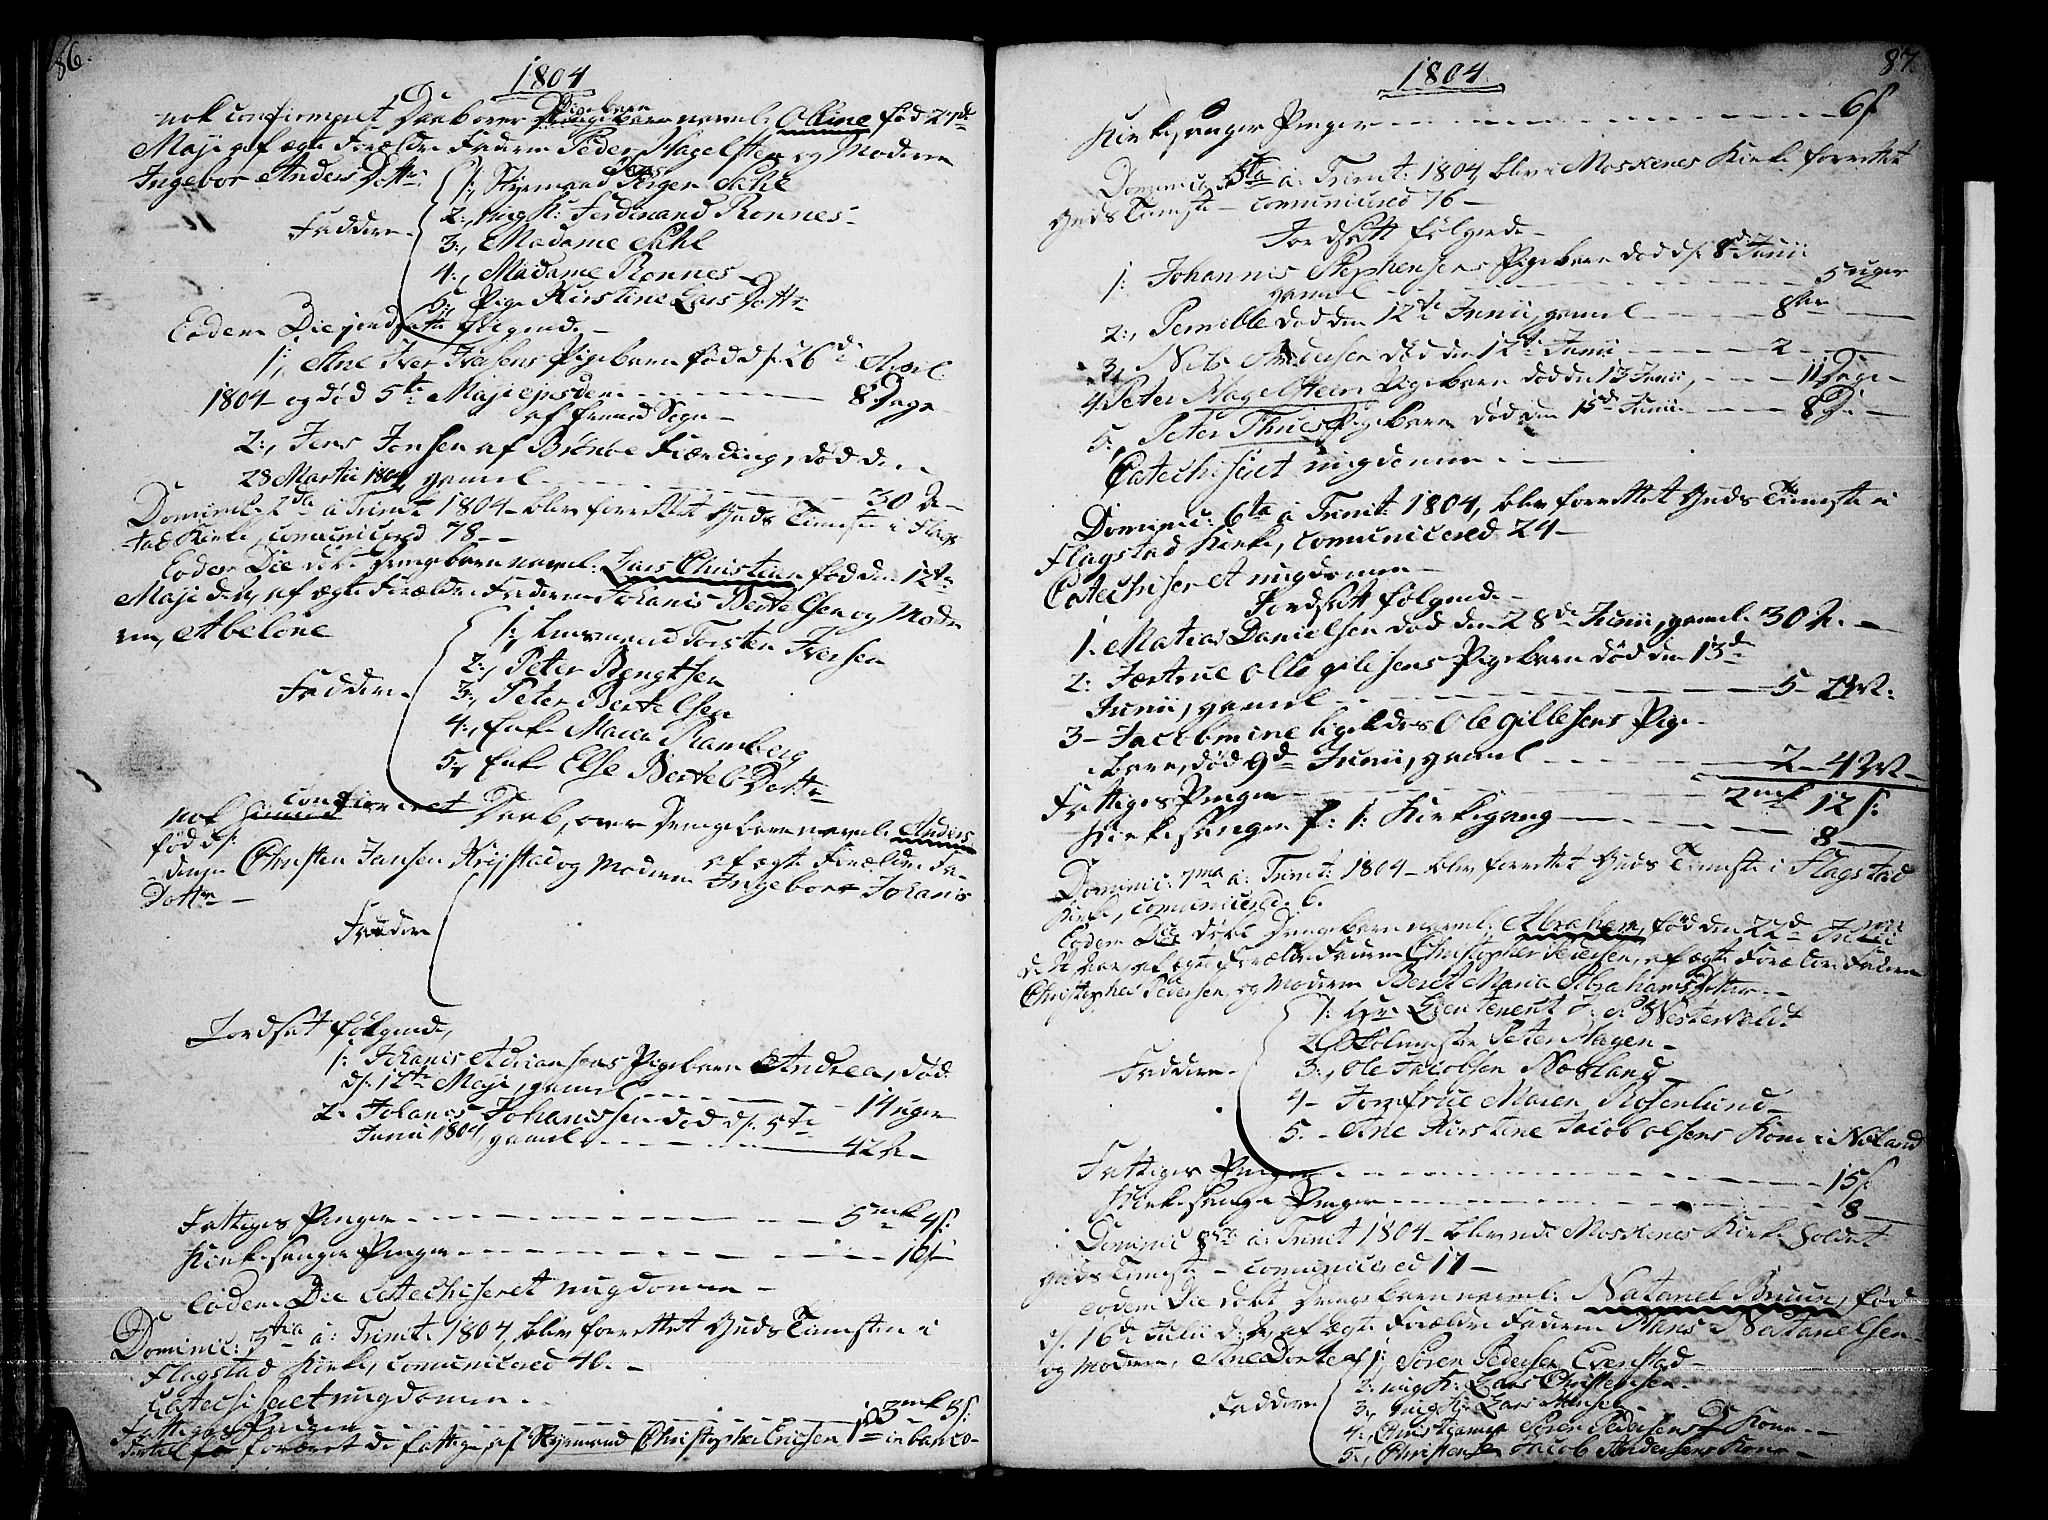 86.
1804
nok confirmeret Daab over Pigebarn navnl: Olline fød 27de
Maji af ægte Forældre Faderen Peder Hagelsten og Moderen
Ingebor Anders Dotter
1; Styrmand Jørgen Dahl
Faddere 2:, ungk: Ferdinand Ronnes
3:, Madame Dahl
4:, Madame Ronnes
5; Pige Kirstine Lars Dotter
Eodem Die jordsatt følgende
1; Ane Iver Iversens Pigebarn fød d: 26de April
1804 og død 5te Maji ejusdem 8 Dage
af fremmed Sogn
2:, Jens Jensen af Brönöe Fierding, død den
28 Martii 1804 gamel 30 Ar
Dominic: 2da à Trinit: 1804 blev forrettet Guds Tienesten i Flag-
stad Kirke, comunicered 78
Eodem Die døbt Drengebarn navnl: Lars Christian fød den 12te
Maji d: A, af ægte Forældre Faderen Johanis Bertelsen og Mode-
ren, Abelone
1; Torsten Iversen
2:, Peter Bengtsen
Faddere 3:, Peter Bertelsen
4:, Enke Maren Ramberg
5; Enke Else Bertels Dotter
nok confirmeret Daab, over Drengebarn navnl: Anders
fød d: af ægte Forældre Fa-
deren Christen Jansen Krystad og Moderen Ingebor Johanis
Dotter
Faddere
Jordsat følgende,
1: Johanis Adriansens Pigebarn Andrea, død
d: 12te Maji, gamel 14 uger
2 Johanes Johanissen død d: 5te
Junii 1804 gamel 42 Ar
Fattiges Penger 5 mk 4 s:
Kirkesanger Penger 16 s
Eodem Die Catechiseret ungdomen
Dominic: 3tia à: Trinit: 1804, blev forrettet Guds Tienesten i
Flagstad Kirke, comunicered 46.
Catechiseret ungdomen
Fattiges Penger 3 mk 3 s:
foræret de fattige af Styrmand Christopher Ericsen 1 in banco
87
1804
Kirkesanger Penger 6 s
Dominic: 5ta à: Trinit: 1804, blev i Moskenes Kirke forrettet
Guds Tieneste comunicered 76
Jordsatt følgende
1: Johannis Stephensens Pigebarn død d: 8de Junii
gamel 5 uger
2:, Pernille død den 12te Junii, gamel 8
3, Nils Andersen død den 12te Junii 2
4 Peter Hagelsteen Pigebarn død den 13 Junii, 11 Dage
5:, Peter Thues Pigebarn død den 15de Junii 8 D:
Catechiseret ungdomen
Dominic: 6ta à Trinit: 1804, blev forrettet Guds Tieneste i
Flagstad Kirke, comunicered 24
Catechiseret ungdomen
Jordsatt følgende
1. Matias Danielsen død den 28de Junii, gamel 30 A.
2: Jertrue Olle Gilesens Pigebarn død den 13de
Junii, gamel 5
3 Jacobmine ligeledes Ole Gillesens Pige-
barn, død 9de Junii, gamel 2
Fattiges Penger 2 mk 12 s:
Kirkesanger f: 1: Kirkegang 8
Dominic: 7ma à: Trinit: 1804 blev forrettet Guds Tieneste i Flagstad
Kirke, comunicered 6.
Eodem Die døbt Drengebarn navnl: Abraham, fød den 22de Junii
af ægte Forældre Faderen Christopher Pedersen, af ægte Forældre Faderen
Christopher Pedersen, og Moderen Beret Maria Abrahams Dotter
1: Hr: Lieutenent Westervoldt
2 Skolemester Peter Hagen
Faddere 3:, Ole Jacobsen Nøsland
4 Jomfrue Maren Rosenlund
5. Ane Kirstine Jacob Olsens Kone i Nøland
Fattiges Penger 15 s:
Kirkesanger Penger 8
Dominic 8va à: Trinit 1804 blev udi Moskenes Kirke holdet
Guds Tieneste comunicered 17
Eodem Die døbt Drengebarn navnl: Natanel Bruun, fød
d: 16de Julii d: A, af ægte Forældre Faderen Hans Natanelsen
og Moderen, Ane Dorte 1; Søren Pedersen Evenstad
2: ungk: Lars Christensen
Faddere 3, ungk: Lars Hansen
4. Søren Pedersens Kone
5:, Christense Jacob Andersens Kone